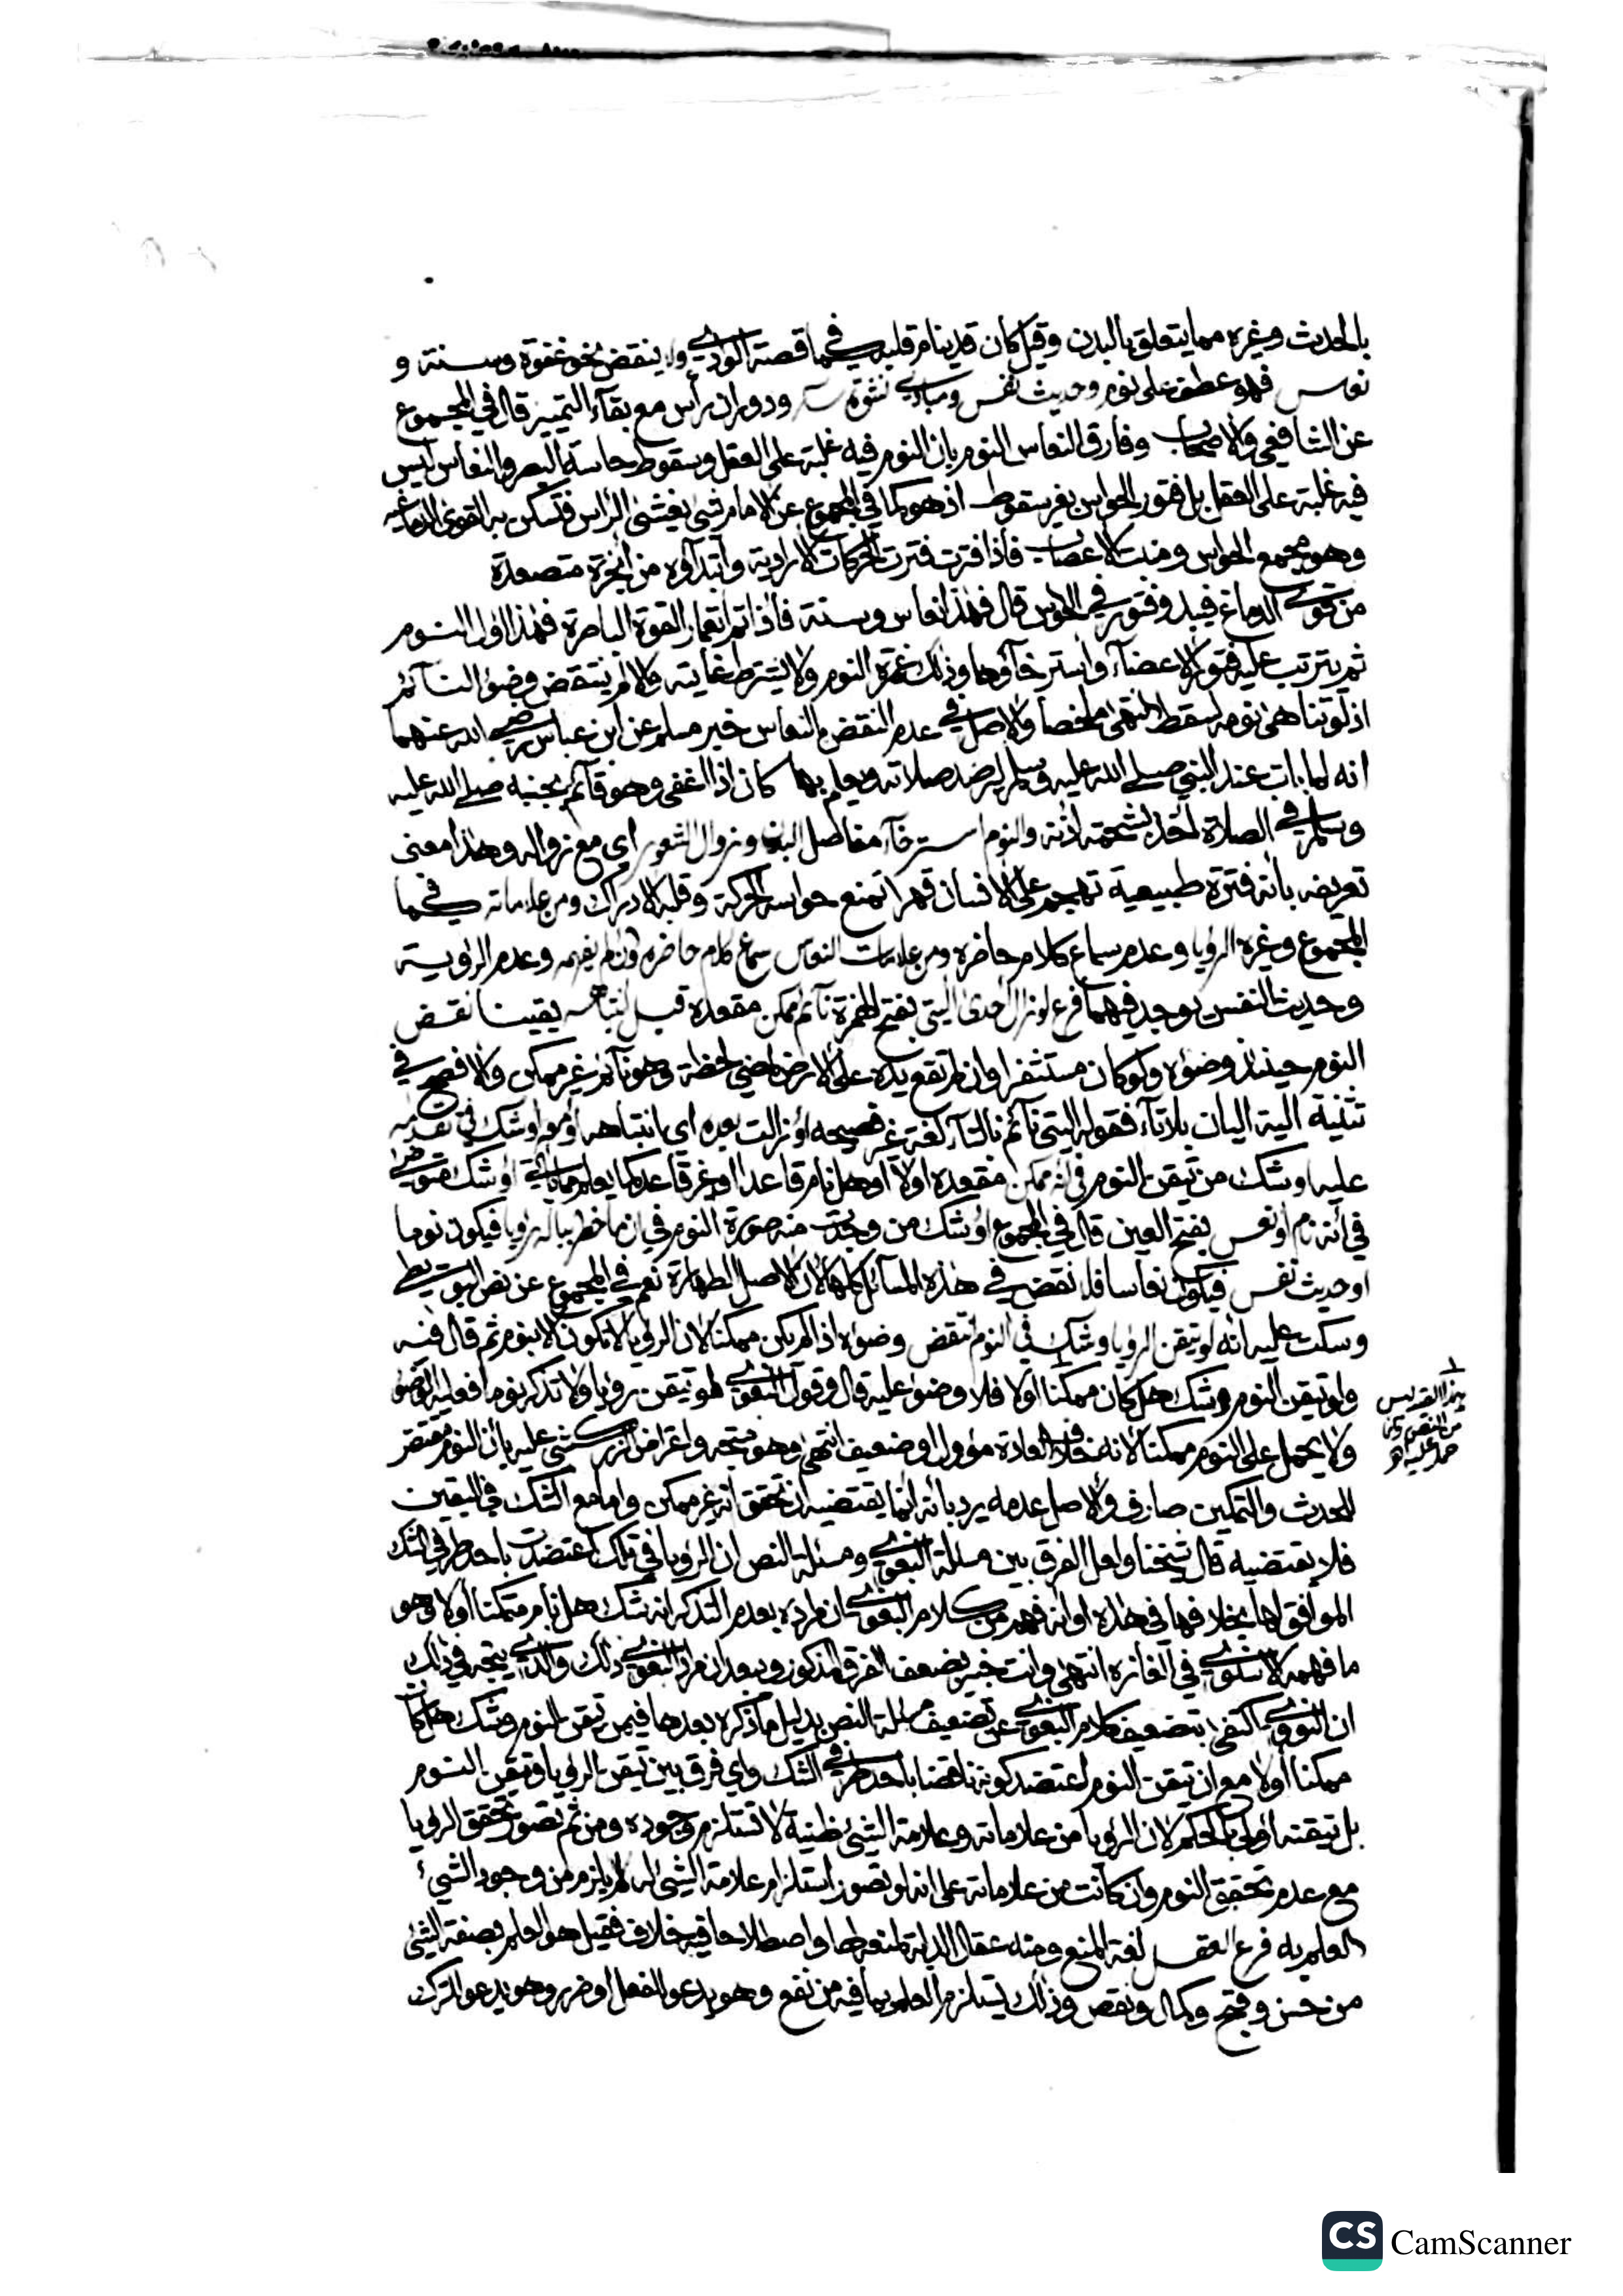 بالحدث وغيره مما يتعلق بالبدن وقيل كان قد ينام قلبه كما في قصة الوادي ولا ينقض نحو غفوة وسنة و
نعاس فهو عطف على نوم وحديث نفس ومبادي نشوة سكر ودوران رأس مع بقاء التمييز قال في المجموع
عن الشافعي والاصحاب وفارق النعاس النوم بان النوم فيه غلبة على العقل وسقوط حاسة البصر والنعاس ليس
فيه غلبة على العقل بل فتور الحواس بغير سقوط اذ هو كما في المجموع عن الامام شئ يغشى الرأس فتسكن به القوى الدماغية
وهو مجمع الحواس ومنبت الاعصاب فاذا فترت فترت الحركات الارادية وابتداؤه من ابخرة متصعدة
من توافي الدماغ فيبدو فتور في الحواس قال فهذا نعاس وسنة فاذا تم انغمار القوة الباصرة فهذا اول النوم
ثم يترتب عليه فتور الاعضاء واسترخاؤها وذلك غمرة النوم ولا يشترط غايته والا لم ينتقض وضوء النائم
اذ لو تناهى نومه لسقط انتهى ملخصا والاصل في عدم النقض بالنعاس خبر مسلم عن ابن عباس رضي الله عنهما
انه لما بات عند النبي صلى الله عليه وسلم ليرصد صلاته ويعلم بها كان اذا اغفى وهو قائم بجنبه صلى الله عليه
وسلم في الصلاة اخذ بشحمة اذنه والنوم استرخاء مفاصل البدن وزوال الشعور اى مع زواله وهذا معنى
تعريفه بانه فترة طبيعية تهجم على الانسان قهرا تمنع حواسه الحركة وقلبه الادراك ومن علاماته كما في
المجموع وغيره الرؤيا وعدم سماع كلام حاضره ومن علامات النعاس سماع كلام حاضره وان لم يفهمه وعدم الرؤية
وحديث النفس يوجد فيهما فرع لو زال احدى اليتي بفتح الهمزة نائم ممكن مقعده قبل انتباهه يقينا نقض
النوم حينئذ وضوءه ولو كان مستثفرا وان لم تقع يده على الارض لمضي لحظة وهو نائم غير ممكن والافصح في
تثنية الية اليان بلا تاء فقوله اليتي نائم بالتاء لغة غير فصيحة او زالت بعده اى انتباهه او معه او شك في تقدمه
عليه او شك من تيقن النوم في انه ممكن مقعده اولا او هل نام قاعدا او غير قاعد كما يعلم مما ياتي او شك متوضئ
في انه نام او نعس بفتح العين قال في المجموع او شك من وجدت منه صورة النوم في ان ما خطر بباله رؤيا فيكون نوما
او حديث نفس فيكون نعاسا فلا نقض في هذه المسائل كلها لان الاصل الطهارة نعم في المجموع عن نص البويطي
وسكت عليه انه لو تيقن الرؤيا وشك في النوم انتقض وضوءه اذا لم يكن ممكنا لان الرؤيا لا تكون الا بنوم ثم قال فيه
ولو تيقن النوم وشك هل كان ممكنا اولا فلا وضوء عليه قال وقول البغوي لو تيقن رؤيا ولا تذكر نوما فعليه الوضوء
ولا يحمل على النوم ممكنا لانه خلاف العادة مؤول او ضعيف انتهى وهو متجه واعتراض الزركشي عليه بان النوم مقتضى
للحدث والتمكين صارف والاصل عدمه يرد بانه انما يقتضيه ان تحقق انه غير ممكن واما مع الشك في اليقين
فلا يقتضيه قال شيخنا ولعل الفرق بين مسئلة البغوي ومسئلة النص ان الرؤيا في تلك اعتضدت باحد طرفي الشك
الموافق لها بخلافها في هذه او انه فهم من كلام البغوي ان مراده بعدم التذكر انه شك هل نام متمكنا اولا وهو
ما فهمه الاسنوي في الغازه انتهى وانت خبير بضعف الفرق المذكور وببعد ان مراد البغوي ذلك والذي يتجه في ذلك
ان النووي اكتفى بتضعيف كلام البغوي عن تضعيف مسئلة النص بدليل ما ذكره بعدها فيمن تيقن النوم وشك هل كان
ممكنا اولا مع ان تيقن النوم اعتضد كونه ناقضا باحد طرفي الشك واي فرق بين تيقن الرؤيا وتيقن النوم
بل تيقنه اولى بالحكم لان الرؤيا من علاماته وعلامة الشئ ظنية لا تستلزم وجوده ومن ثم تصور تحقق الرؤيا
مع عدم تحقق النوم وان كانت من علاماته على انه لو تصور استلزام علامة الشئ له لم يلزم من وجود الشيء
العلم به فرع العقل لغة المنع ومنه عقال الدابة لمنعه لها واصطلاحا فيه خلاف فقيل هو العلم بصفة الشئ
من حسن وقبح وكمال ونقص وذلك يستلزم العلم بما فيه من نفع وهو يدعو للفعل او ضرر وهو يدعو للترك
CS CamScanner